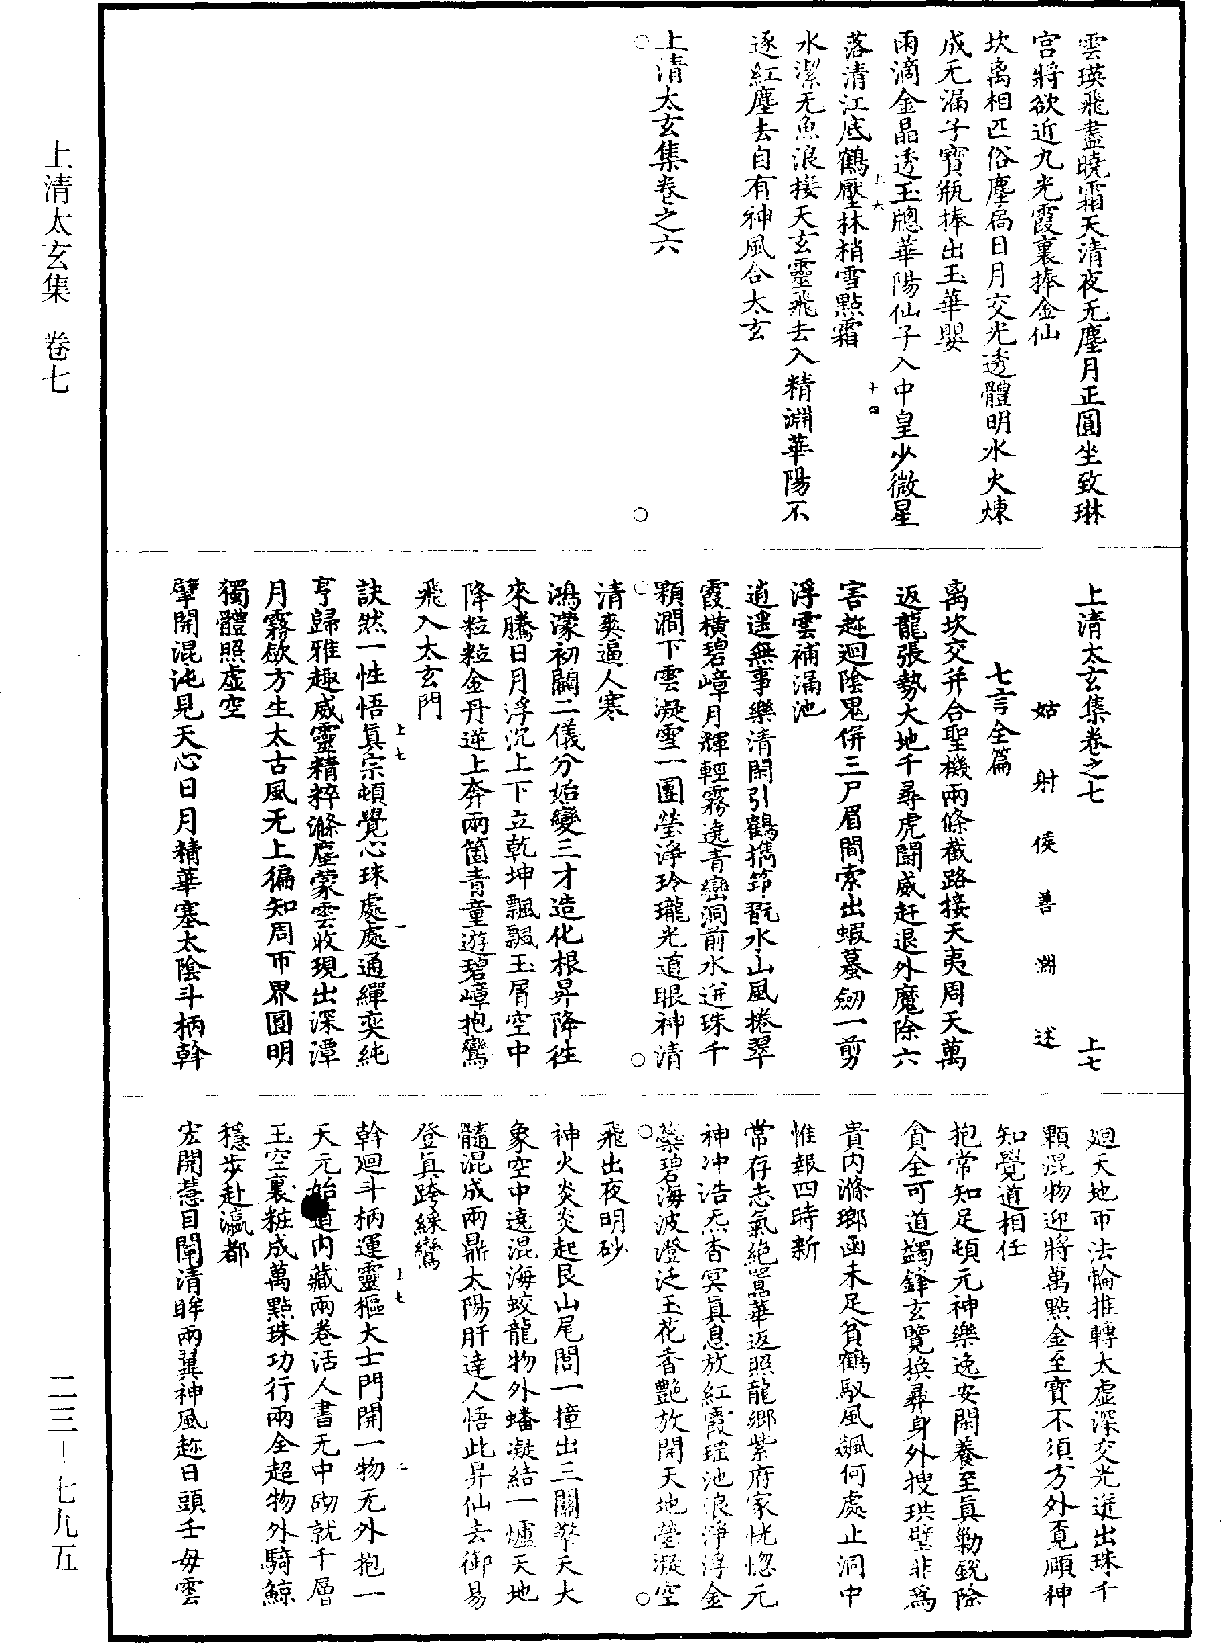 上清太玄集　卷七
二三－七九五
雲瑛飛盡曉霜天清夜无塵月正圓坐致琳
宫將欲近九光霞裏捧金仙
坎离相匹俗塵局日月交光透體明水火煉
成无漏子寶瓶捧出玉華嬰
雨滴金晶透玉牕華陽仙子入中皇少微星
落清江底鶴壓林梢雪點霜
水潔无魚浪接天玄靈飛去入精淵華陽不
逐紅塵去自有神風合太玄
上清太玄集卷之六
上六
十四
上清太玄集卷之七　上七
姑射侯善淵述
七言全篇
离坎交并合聖機兩條截路接天夷周天萬
返龍張勢大地千尋虎鬪威赶退外魔除六
害趂迴陰鬼併三尸眉間索出蝦蟇劒一剪
浮雲補漏池
逍遥無事樂清閑引鶴携筇翫水山風捲翠
霞横碧嶂月輝輕霧遶青巒洞前水迸珠千
顆澗下雲凝雪一團瑩淨玲瓏光道眼神清
清爽逼人寒
鴻濛初闢二儀分始變三才造化根昇降往
來騰日月浮沉上下立乾坤飄飄玉屑空中
降粒粒金丹逆上奔兩箇青童遊碧嶂抱鸞
飛入太玄門
訣然一性悟真宗頓覺心珠處處通繟奕純
亨歸雅趣威靈精粹滌塵蒙雲收現出深潭
月霧歛方生太古風无上徧知周帀界圓明
獨體照虚空
擘開混沌見天心日月精華塞太陰斗柄斡
上七
廻天地帀法輪推轉太虚深交光迸出珠千
顆混物迎將萬點金至寶不須方外覔頋神
知覺道相任
抱常知足頓元神樂逸安閑養至真勦銳除
貪全可道蠲鋒玄覽换彝身外搜珙璧非爲
貴内滌瑯函未足貧鶴馭風飊何處止洞中
惟報四時新
常存志氣絶囂華返照龍郷紫府家恍惚元
神冲浩炁杳冥真息放紅霞瑶池浪淨浮金
蘂碧海波澄泛玉花香艷放開天地瑩凝空
飛出夜明砂
神火炎炎起艮山尾閭一撞出三關擎天大
象空中遶混海蛟龍物外蟠凝結一爐天地
髓混成兩鼎太陽肝達人悟此昇仙去御易
登真跨綵鸞
斡廻斗柄運靈樞大士門開一物无外抱一
天元始道内藏兩卷活人書无中砌就千層
玉空裏粧成萬點珠功行兩全超物外騎鯨
穩步赴瀛都
宏開慧目闡清眸兩翼神風趂日頭壬毋雲
上七